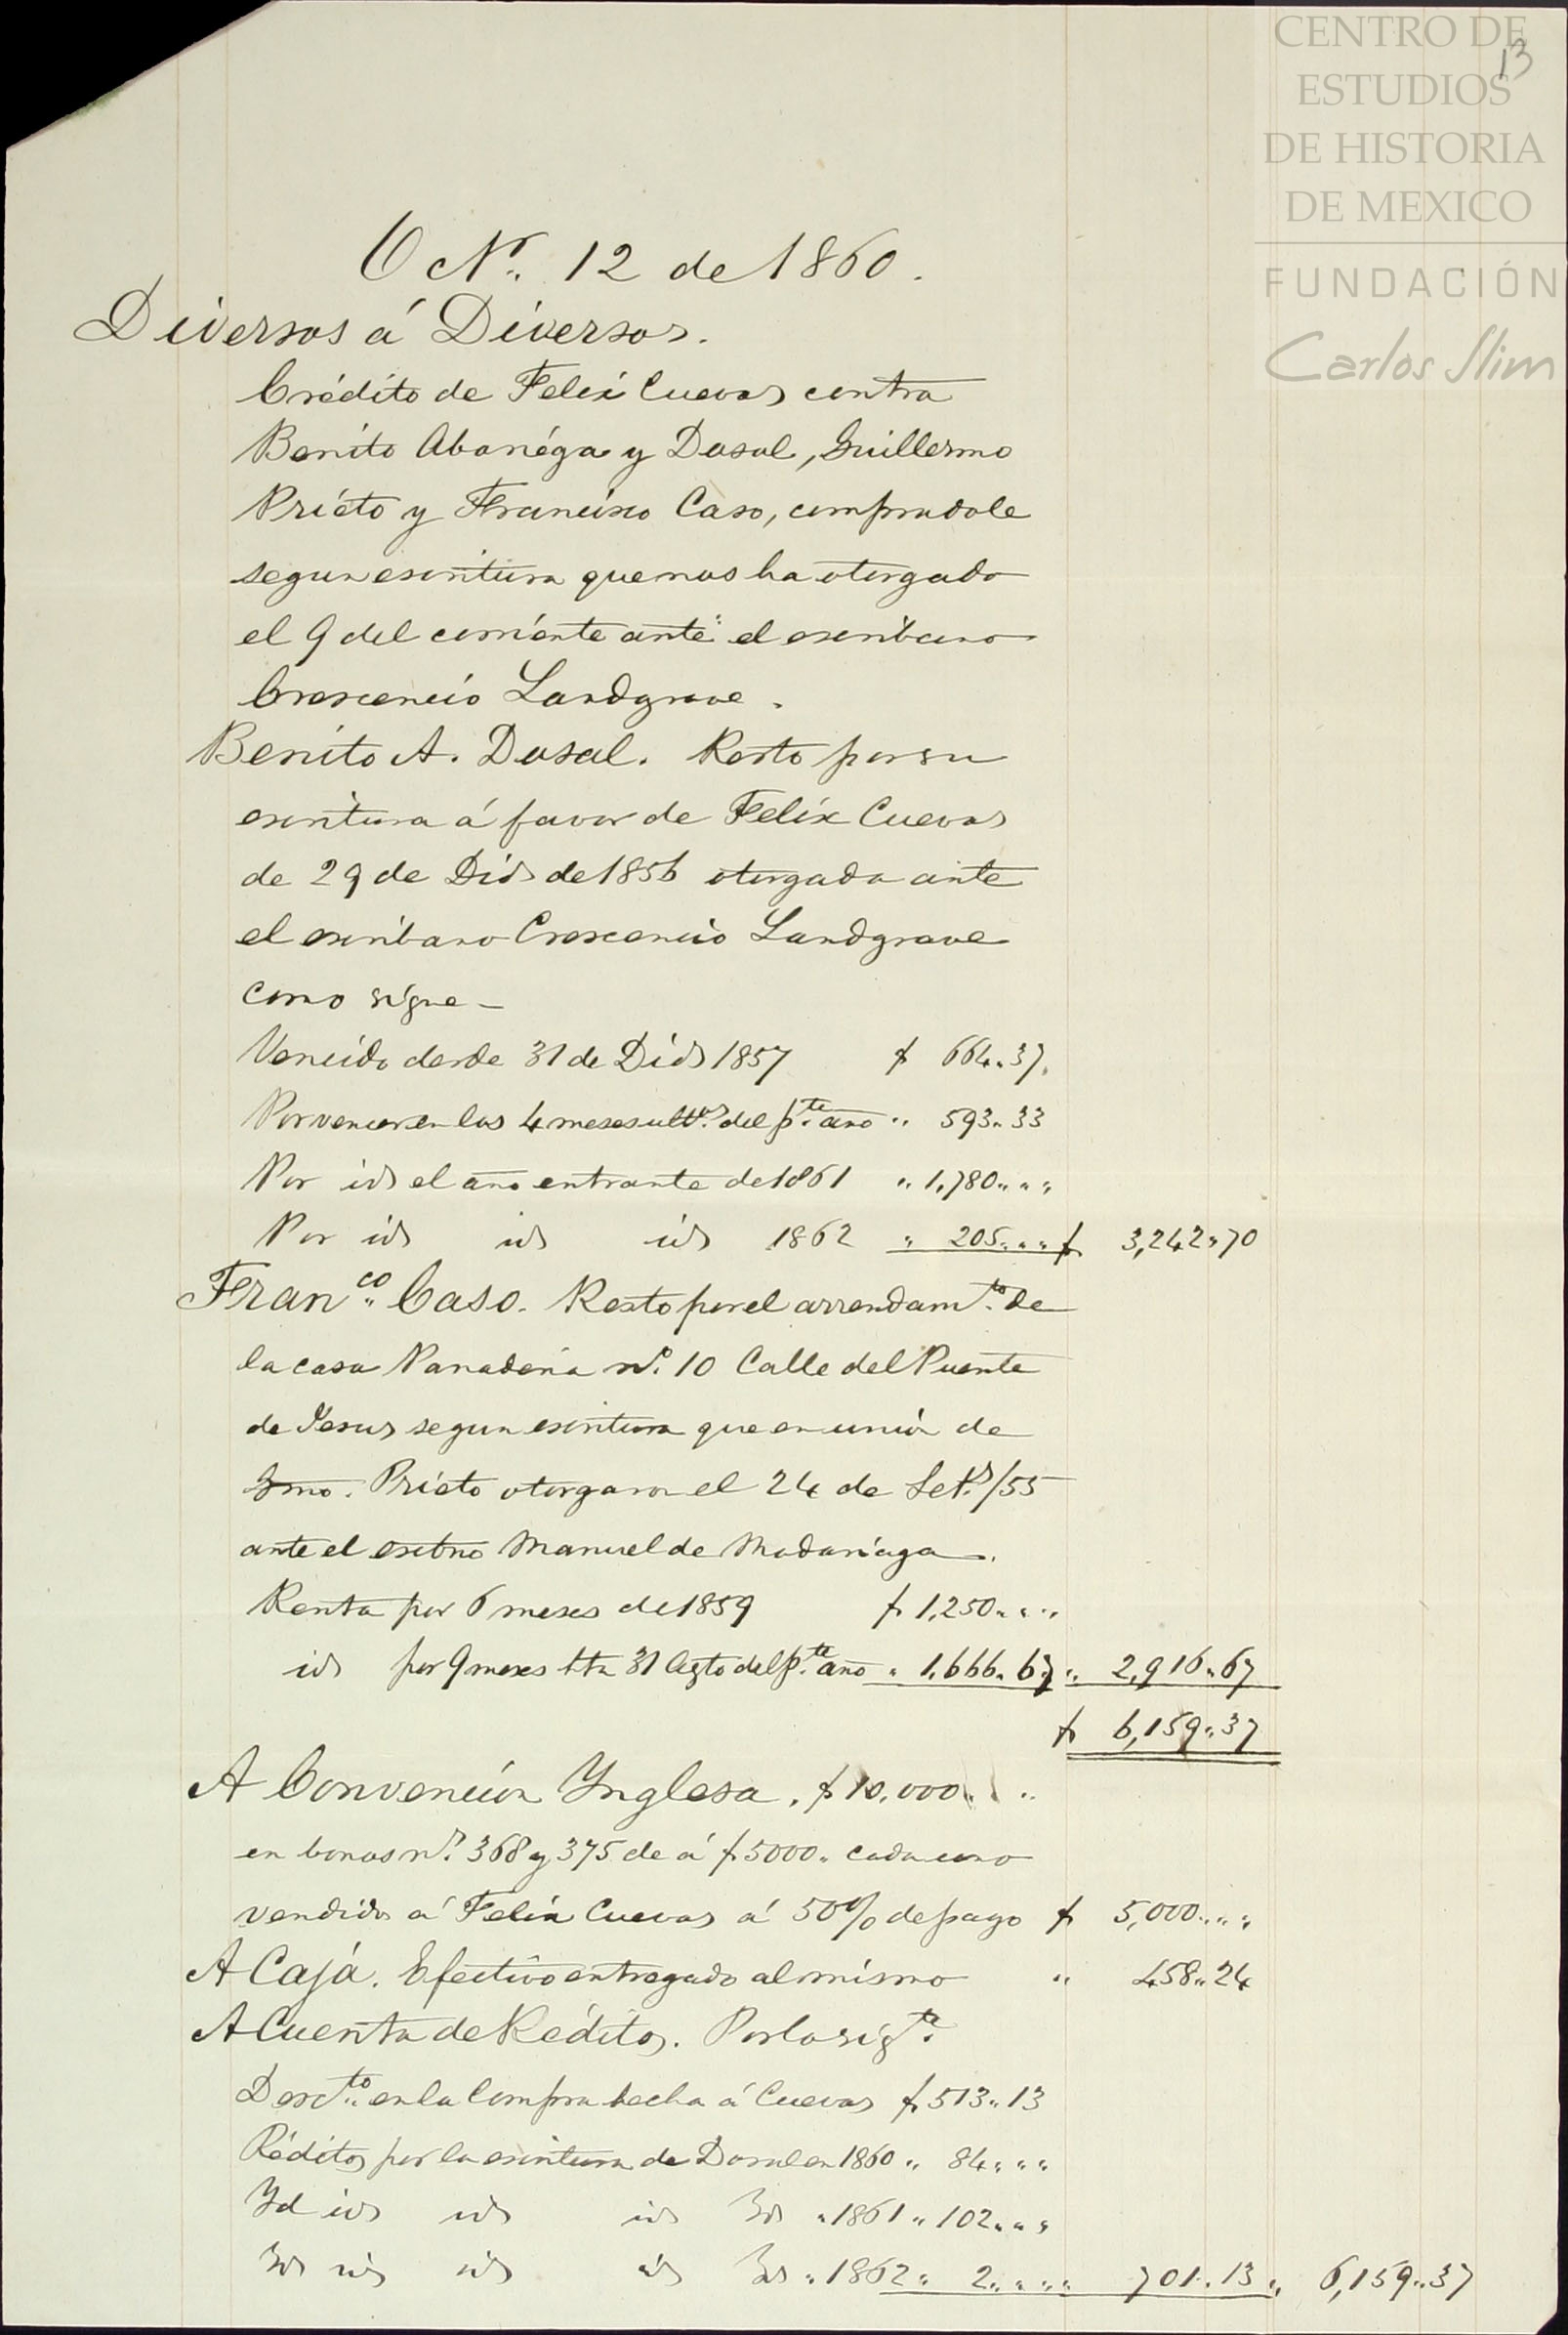 CENTRO DE
ESTUDIOS
DE HISTORIA
DE MEXICO
FUNDACIÓN
Carlos Slim
13
O Nre. 12 de 1860.
Diversos á Diversos.
Crédito de Felix Cuevas contra
Benito Abanéga y Dosal, Guillermo
Prieto y Francisco Caso, compradole
segun escritura que nos ha otorgado
el 9 del corriente ante el escribano
Crescencio Landgrave.
Benito A. Dosal. Resto por su
escritura á favor de Felix Cuevas
de 29 de Dic de 1856 otorgada ante
el escribano Crescencio Landgrave
como sigue —
Vencido desde 31 de Dic 1857 $ 664.37.
Por vencer en los 4 meses ultos. del pte. año " 593.33
Por id el año entrante de 1861 " 1,780 " "
Por id id id 1862 " 205 " " $ 3,242"70
Franco. Caso. Resto por el arrendamto. de
la casa Panaderia no. 10 Calle del Puente
de Jesus segun escritura que en union de
Gmo. Prieto otorgaron el 24 de Set./55
ante el escbno Manuel de Madariaga.
Renta por 6 meses de 1859 $ 1,250 " "
id por 9 meses hta 31 Agto del pte. año " 1,666.67 " 2,916.67
$ 6,159.37
A Convencion Ynglesa. $ 10,000 "
en bonos ns. 368 y 375 de á $ 5000. cada uno
vendidos á Felix Cuevas á 50% de pago $ 5,000 " "
A Caja. Efectivo entregado al mismo " 458.24
A Cuenta de Réditos. Por lo sigte.
Descto. en la Compra hecha á Cuevas $ 513.13
Réditos por la escritura de Dosal en 1860 " 84 " "
Yd id id id Yd " 1861 " 102 " "
Yd id id id Yd " 1862 " 2 " " 701.13 " 6,159.37